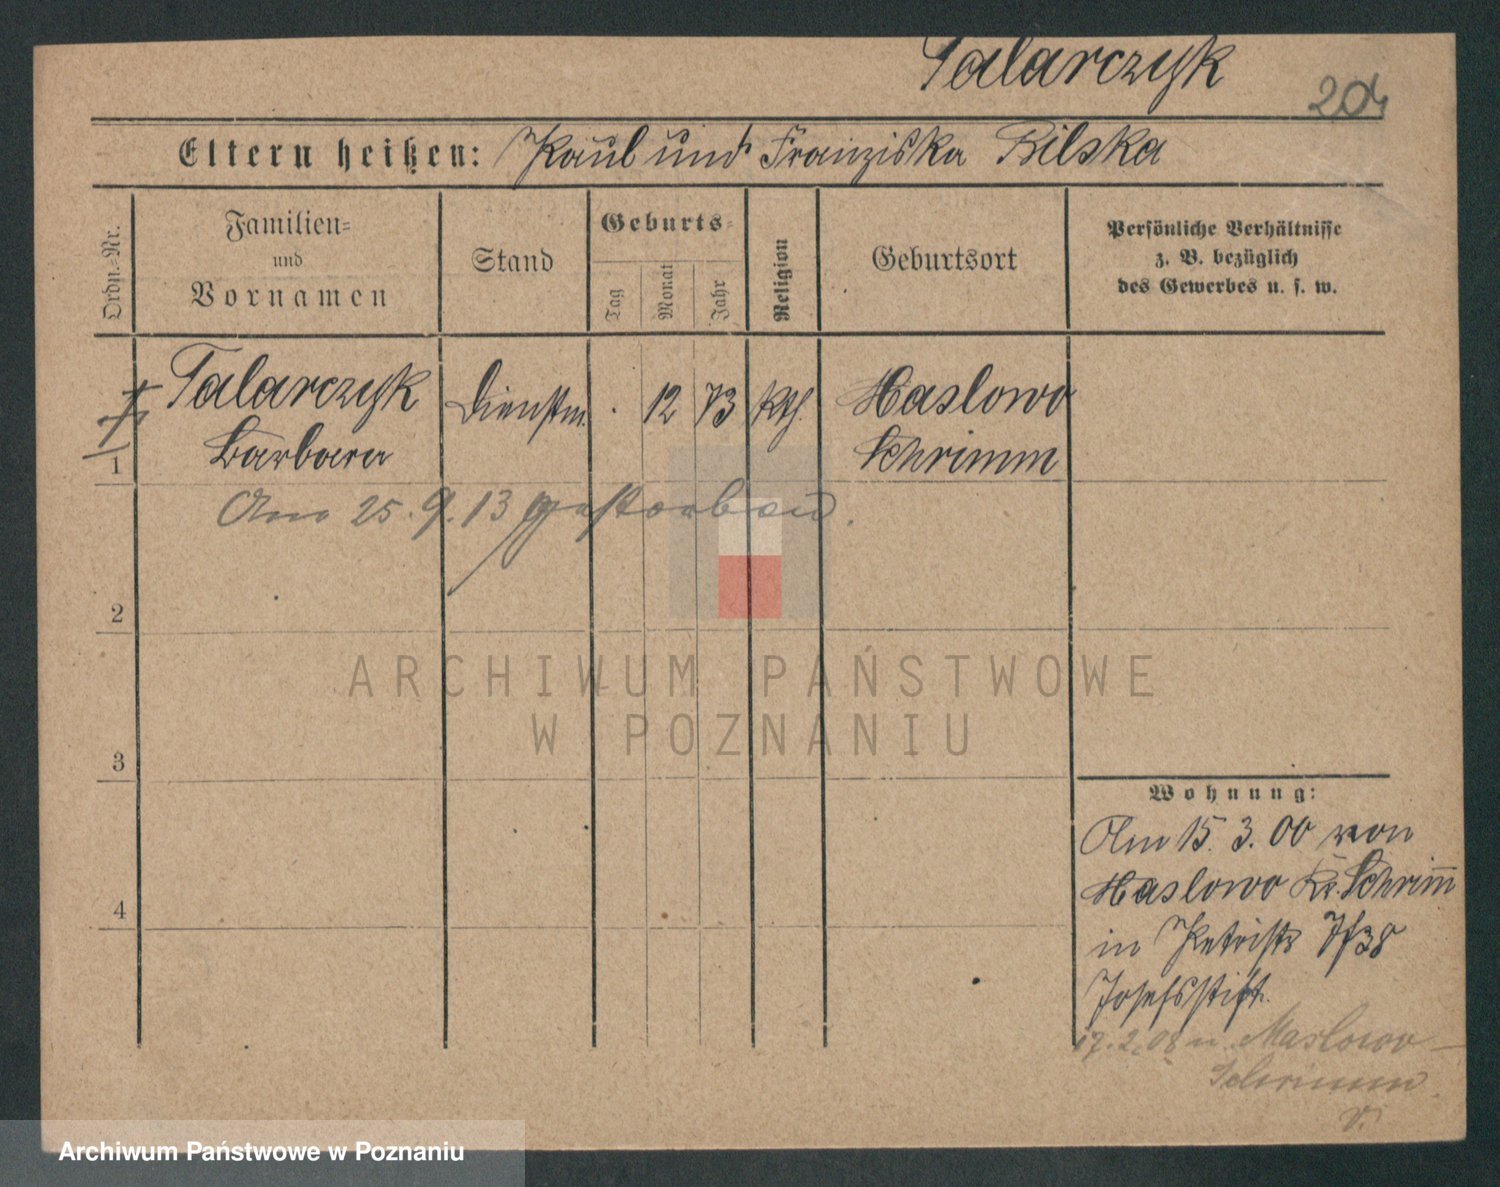 Talarczyk
20
Eltern heißen: Paul und Franziska Bilska
Ordn.-Nr.
Familien-
und
Vornamen
Stand
Geburts-
Tag
Monat
Jahr
Religion
Geburtsort
Persönliche Verhältnisse
z. B. bezüglich
des Gewerbes u. s. w.
Talarczyk Dienstm. 12 73 kth. Maslowo
1 Barbara Schrimm
Am 25.9.13 gestorben.
2
3
4
Wohnung:
Am 15.3.00 von
Maslowo Kr. Schrimm
in Petristr
Josefsstift.
17.2.08 n. Maslowo
Schrimm.
ARCHIWUM PAŃSTWOWE
W POZNANIU
Archiwum Państwowe w Poznaniu